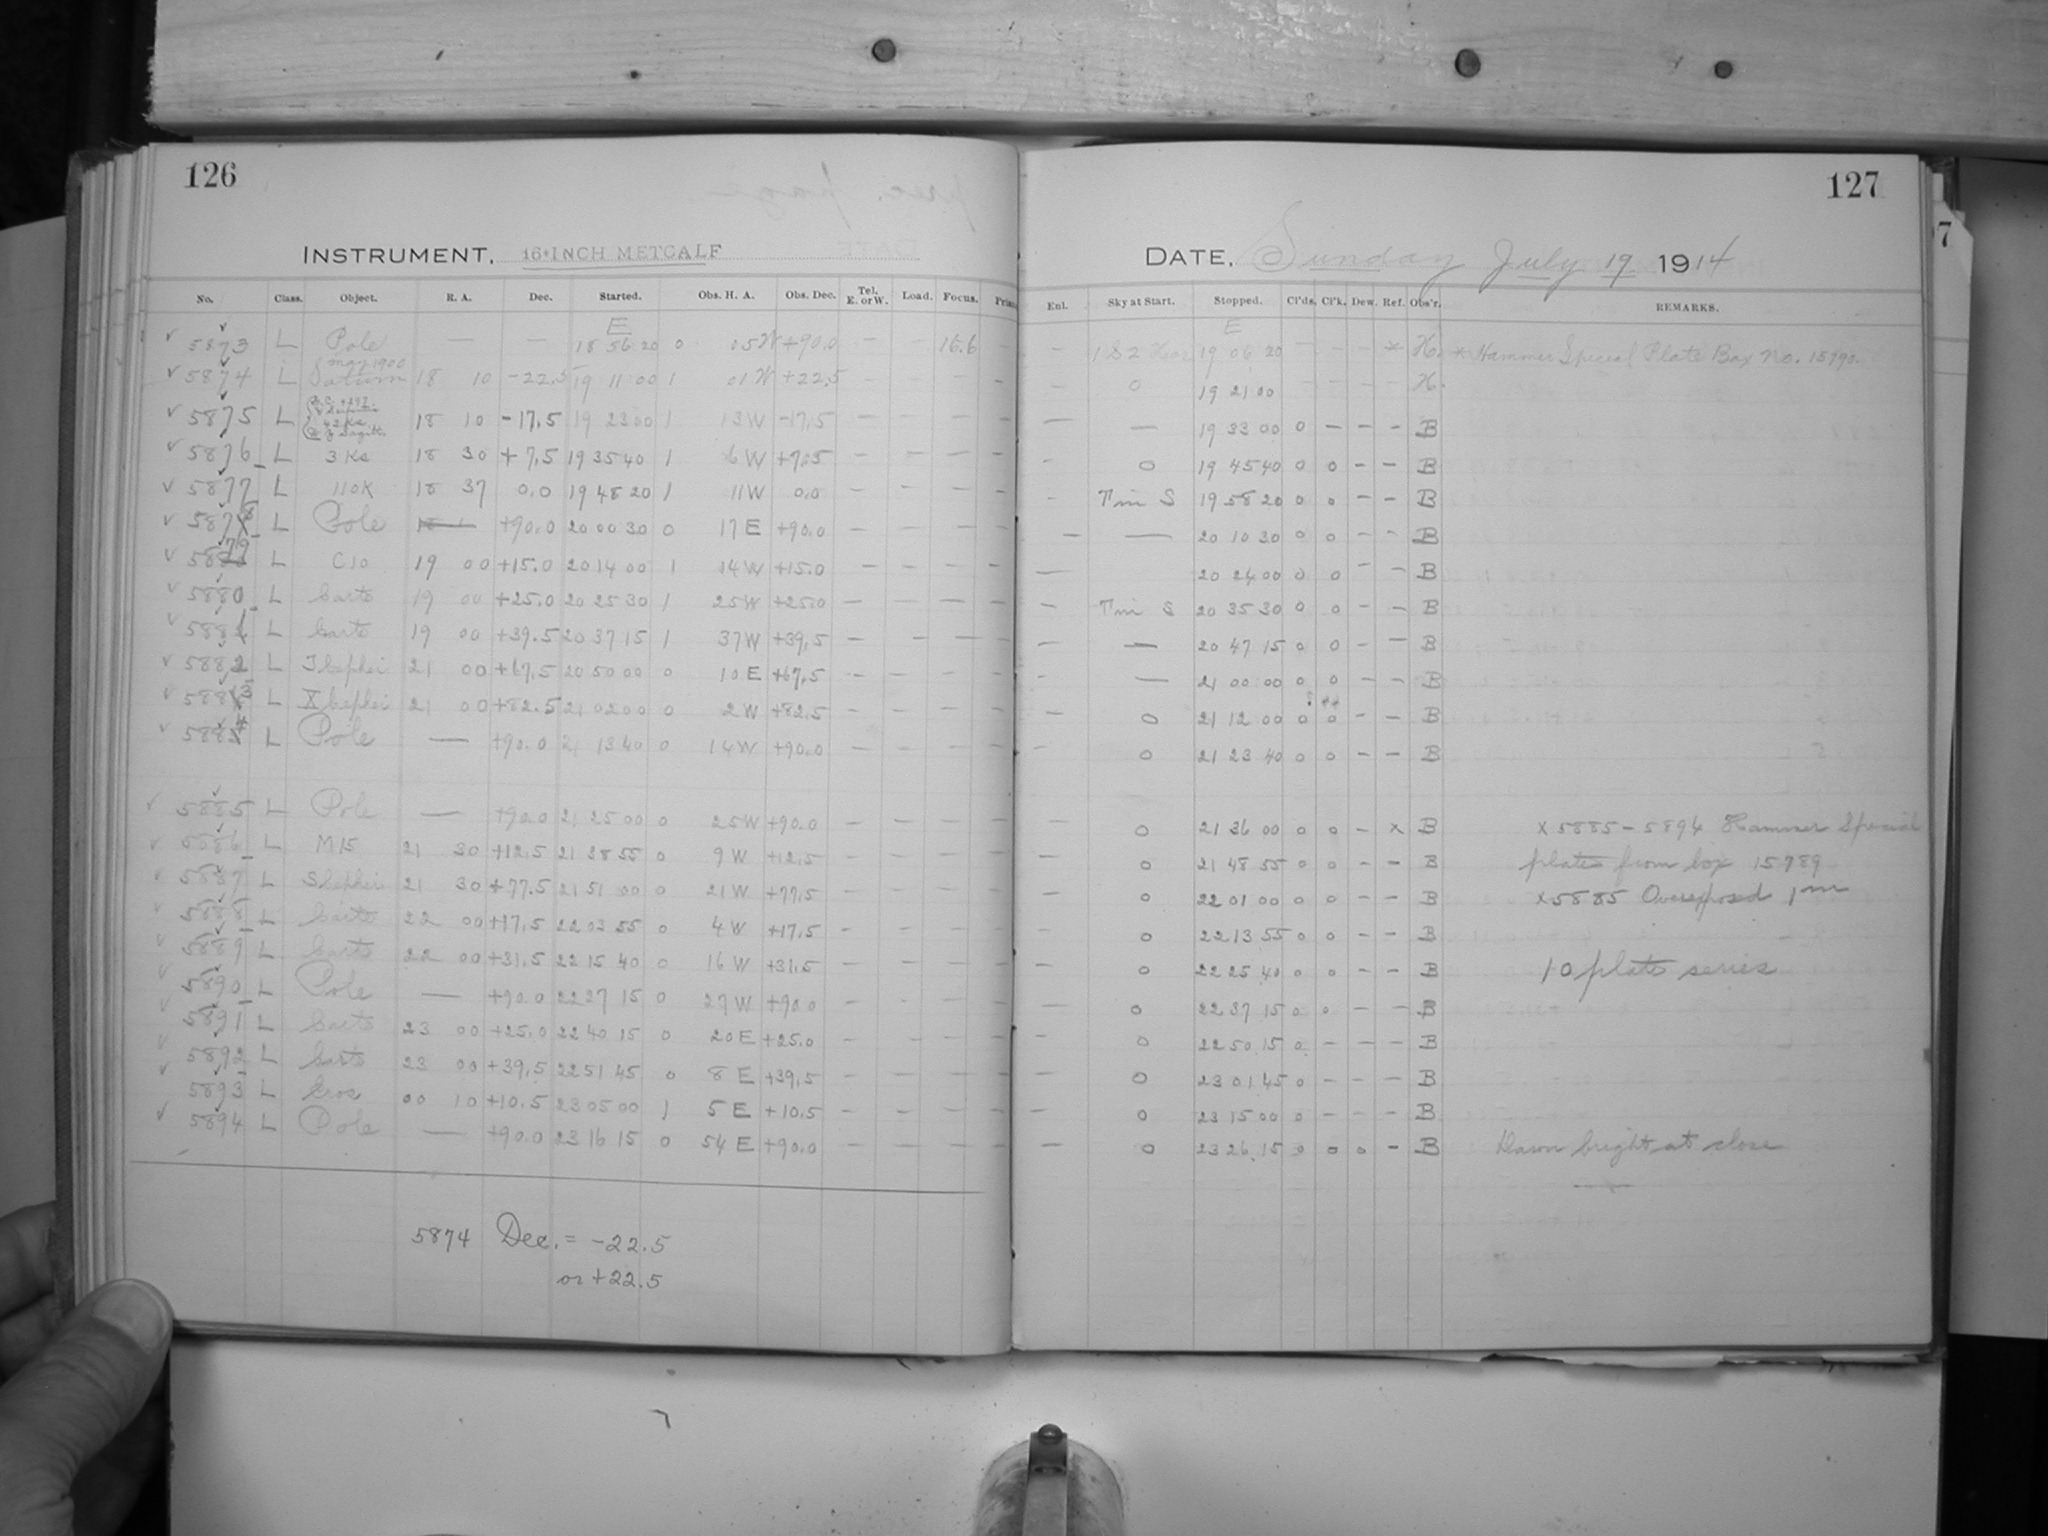 126
INSTRUMENT, 16-INCH METCALF
No. Class. Object. R. A. Dec. Started. Obs. H. A. Obs. Dec. Tel. E. or W. Load. Focus.
E
5873 L Pole — — 18 56 20 0 05W +90.0 — — 16.6
5874 L Saturn 18 10 -22.5 19 11 00 1 01 W +22.5 — — —
5875 L 18 10 -17.5 19 23 00 1 13 W -17.5 — — —
5876 L 3 Ks 18 30 +7.5 19 35 40 1 6 W +7.5 — — —
5877 L 110K 18 37 0.0 19 48 20 1 11W 0.0 — — —
5878 L Pole +90.0 20 00 30 0 17 E +90.0 — — —
5879 L C10 19 00 +15.0 20 14 00 1 14W +15.0 — — —
5880 L 19 00 +25.0 20 25 30 1 25W +25.0 — — —
5881 L 19 00 +39.5 20 37 15 1 37W +39.5 — — —
5882 L 21 00 +67.5 20 50 00 0 10 E +67.5 — — —
5883 L 21 00 +82.5 21 02 00 0 2W +82.5 — — —
5884 L Pole — +90.0 21 13 40 0 14W +90.0 — — —
5885 L Pole — +90.0 21 25 00 0 25W +90.0 — — —
5886 L M15 21 30 +12.5 21 38 55 0 9 W +12.5 — — —
5887 L 21 30 +77.5 21 51 00 0 21W +77.5 — — —
5888 L 22 00 +17.5 22 03 55 0 4 W +17.5 — — —
5889 L 22 00 +31.5 22 15 40 0 16 W +31.5 — — —
5890 L Pole — +90.0 22 27 15 0 27W +90.0 — — —
5891 L 23 00 +25.0 22 40 15 0 20E +25.0 — — —
5892 L 23 00 +39.5 22 51 45 0 8 E +39.5 — — —
5893 L 00 10 +10.5 23 05 00 1 5 E +10.5 — — —
5894 L Pole — +90.0 23 16 15 0 54 E +90.0 — — —
5874 Dec. = -22.5
or +22.5
127
DATE, Sunday July 19 1914
Enl. Sky at Start. Stopped. Cl'ds. Cl'k. Dew. Ref. Obs'r. REMARKS.
E
19 06 20 — — — * H. * Hammer Special Plate Box No. 15790.
0 19 21 00 H.
— — 19 33 00 0 — — — B
— 0 19 45 40 0 0 — — B
— Tm S 19 58 20 0 0 — — B
— — 20 10 30 0 0 — — B
— 20 24 00 0 0 — — B
— Tm S 20 35 30 0 0 — — B
— — 20 47 15 0 0 — — B
— — 21 00 00 0 0 — — B
— 0 21 12 00 0 0 — — B
— 0 21 23 40 0 0 — — B
— 0 21 36 00 0 0 — x B x 5885 - 5894 Hammer Special
— 0 21 48 55 0 0 — — B plates from box 15789
— 0 22 01 00 0 0 — — B x 5885 Overexposed 1m
— 0 22 13 55 0 0 — — B
— 0 22 25 40 0 0 — — B 10 plate series
— 0 22 37 15 0 0 — — B
— 0 22 50 15 0 — — — B
— 0 23 01 45 0 — — — B
— 0 23 15 00 0 — — — B
— 0 23 26 15 0 0 0 — B Dawn bright at close